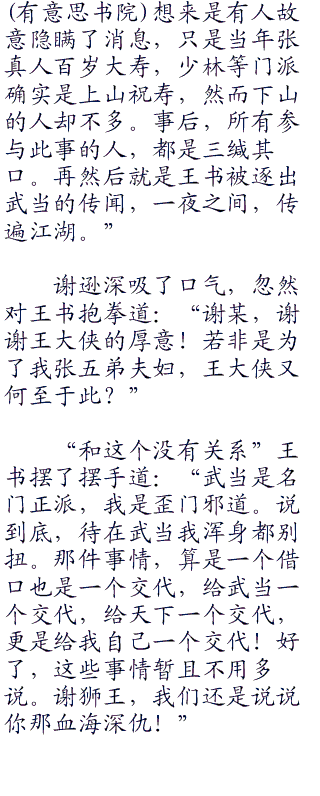 (有意思书院)想来是有人故
意隐瞒了消息，只是当年张
真人百岁大寿，少林等门派
确实是上山祝寿，然而下山
的人却不多。事后，所有参
与此事的人，都是三缄其
口。再然后就是王书被逐出
武当的传闻，一夜之间，传
遍江湖。”
谢逊深吸了口气，忽然
对王书抱拳道：“谢某，谢
谢王大侠的厚意！若非是为
了我张五弟夫妇，王大侠又
何至于此？”
“和这个没有关系”王
书摆了摆手道：“武当是名
门正派，我是歪门邪道。说
到底，待在武当我浑身都别
扭。那件事情，算是一个借
口也是一个交代，给武当一
个交代，给天下一个交代，
更是给我自己一个交代！好
了，这些事情暂且不用多
说。谢狮王，我们还是说说
你那血海深仇！”